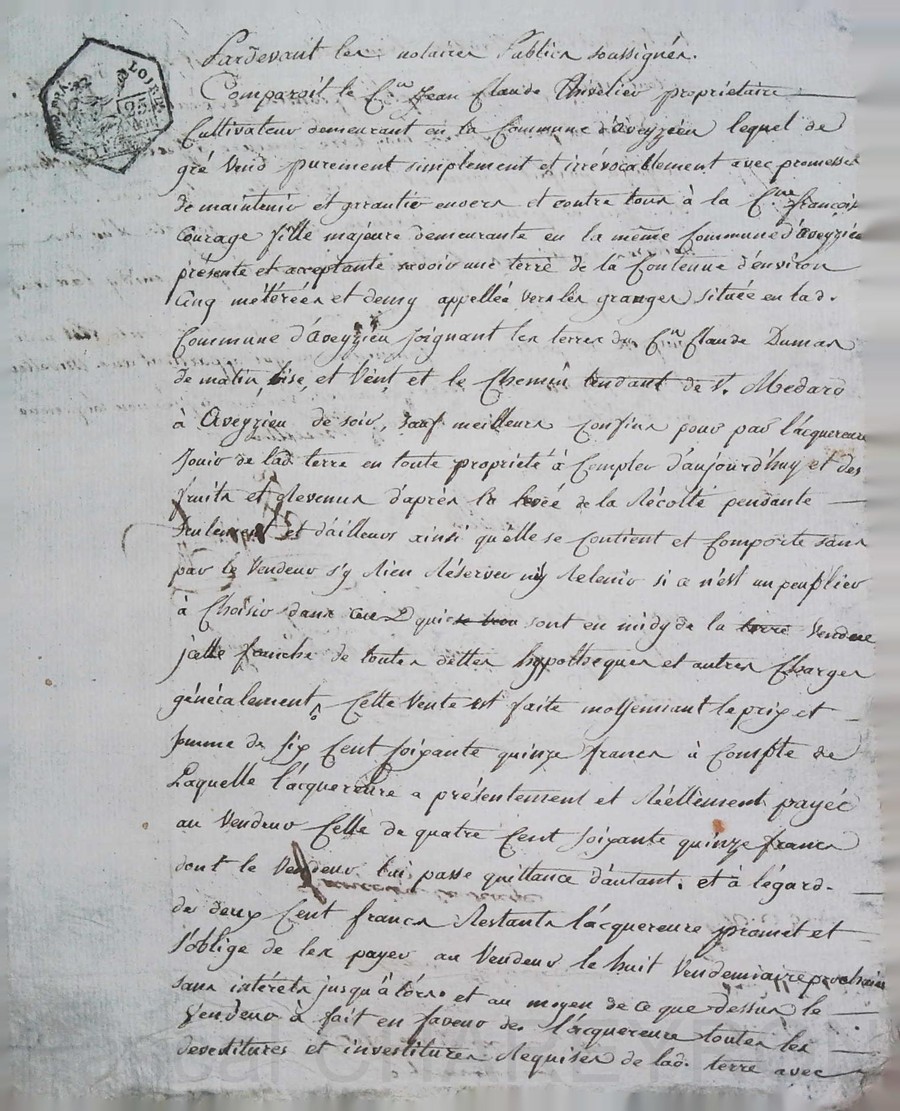 Pardevant les notaires Publics soussignés.
Comparoit le C.en Jean Claude Thivelier propriétaire
Cultivateur demeurant en la Commune d'aveyzieu lequel de
gré Vend purement simplement et irrévocablement avec promesse
de maintenir et garantir envers et contre tous à la C.nne françoise
Courage fille majeure demeurante en la même Commune d'aveyzieu
présente et acceptante savoir une terre de la Contenue d'environ
Cinq métérées et demy appellée vers les granges située en lad.
Commune d'aveyzieu joignant les terres du C.en Claude Dumas
de matin, bise, et Vent et le Chemin tendant de S.t Medard
à aveyzieu de soir, sauf meilleurs Confins pour par l'acquereure
Jouir de lad. terre en toute propriété à Compter d'aujourd'huy et des
fruits et Revenus d'après la levée de la Récolte pendante
seulement et d'ailleurs ainsi qu'elle se Contient et Comporte sans
par le Vendeur s'y Rien Réserver ny Retenir si ce n'est un peuplier
à Choisir dans qui sont en midy de la terre Vendue
jcelle franche de toutes dettes hypotheques et autres Charges
généralement, Cette Vente est faite moyennant le prix et
somme de six Cent soixante quinze francs à Compte de
Laquelle l'acquereure a présentement et Réellement payée
au Vendeur Celle de quatre Cent soixante quinze francs
dont le Vendeur lui passe quittance d'autant. et à légard.
de deux Cent francs Restants l'acquereure promet et
s'oblige de les payer au Vendeur le huit Vendemiaire prochain
sans intérêts jusqu'alors et au moyen de ce que dessus le
Vendeur à fait en faveur de l'acquereure toutes les
devestitures et investitures Requises de lad. terre avec